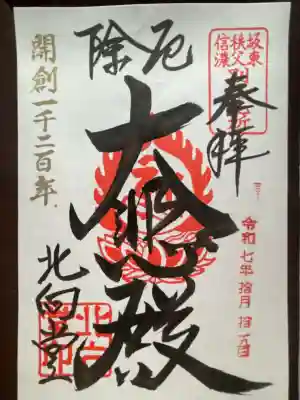 坂東
秩父
信濃
奉拝
厄除
大悲殿
開創一千二百年
北向堂
令和七年拾月拾九日